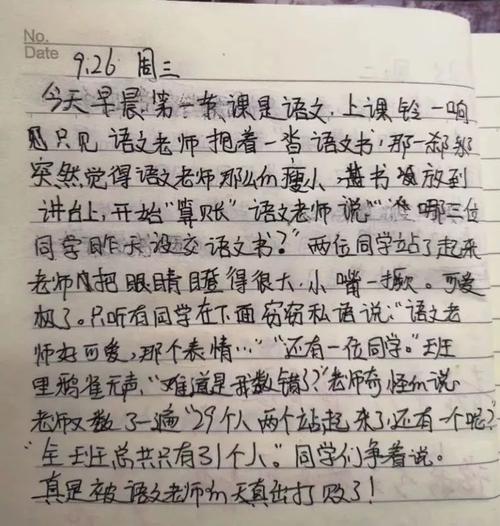 No.
Date
9.26 周三
今天早晨,第一节课是语文,上课铃一响
只见语文老师抱着一沓语文书,那一刹那
突然觉得语文老师那么的瘦小,书放到
讲台上,开始“算账”语文老师说“谁哪三位
同学昨天没交语文书?”两位同学站了起来
老师把眼睛瞪得很大,小嘴一撅。可爱
极了。只听有同学在下面窃窃私语说:“语文老
师好可爱,那个表情…”“还有一位同学。”班
里鸦雀无声,“难道是我数错了?”老师奇怪的说
老师又数了一遍“29个人两个站起来了,还有一个呢?”
“全班总共只有31个人。”同学们争着说。
真是被语文老师的天真出打败了!